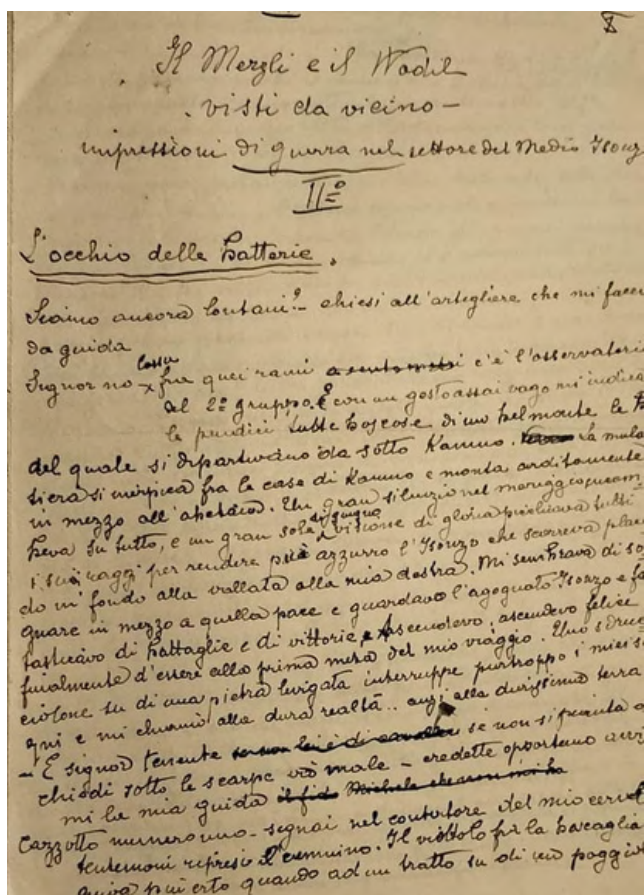 Il Merzli e il Vodil
visti da vicino -
impressioni di guerra nel settore del Medio Isonz
II°
L'occhio delle batterie.
Siamo ancora lontani? - chiesi all'artigliere che mi facev
da guida
Signor no - fra quei rami c'è l'osservatorio
Lassù
del 2° gruppo. E con un gesto assai vago mi indica
le pendici tutte boscose di un bel monte le
del quale si dipartivano da sotto Kamno. La mula
tiera si inerpica fra le case di Kamno e monta arditamente
in mezzo all'abetaio. Un gran silenzio nel meriggio
beva su tutto, e un gran sole di giugno, visione di gloria tutti
i suoi raggi per rendere più azzurro l'Isonzo che scorreva plac
do in fondo alla vallata alla mia destra. Mi sembrava di so
gnare in mezzo a quella pace e guardavo l'agognato Isonzo e fa
tasticavo di battaglie e di vittorie, e ascendevo, ascendevo felice
finalmente d'essere alla prima meta del mio viaggio. Uno sdruc
ciolone su di una pietra levigata interruppe purtroppo i miei so
gni e mi chiamò alla dura realtà.. anzi alla durissima terra
- E signor tenente se non si pianta
chiodi sotto le scarpe va male - credette opportuno avvi
mi la mia guida il fido Michele che non mi ha
Cazzotto numero uno - segnai nel contatore del mio cervel
e ripresi il cammino. Il viottolo fra la boscaglia
più erto quando ad un tratto su di un poggio